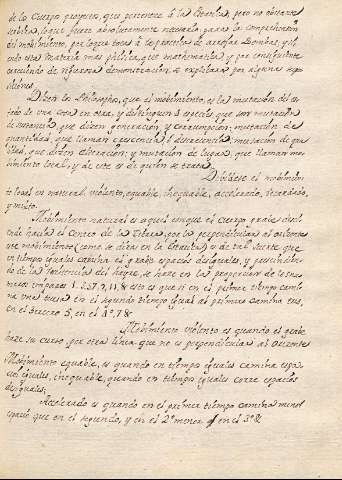 de la Cuerpo proyecto, que pertenece â la Estatica, pero no obstante
servira, lo que fuere absolutamente necesario para la comprehension
del mobimiento, por lo que toca â la practica de arrojar Bombas, y si
endo esta materia mas phisica, que mathematica y por consiguiente
careciendo de rigurosa demonstracion se explicara por algunas supo
siciones.
Dicen los Philosophos, que el mobimiento, es la mutacion del es
tado de una cosa en otra, y distinguen 3 especies, que son mutacion
de sustancia, que dicen generacion y corrupcion; mutacion de
quantidad, que llaman crescencia, ô decrescencia; mutacion de qua
lidad, que dicen alteracion; y mutacion de lugar, que llaman mo
bimiento local, y de este es de quien se trata.
Dibidese el mobimien
to local en natural, violento, equable, inequable, accelerado, retardado,
y mixto.
Mobimiento natural es aquel con que el cuerpo grabe desci
ende hacia el Centro de la Tierra, por la perpendicular al orizonte
este mobimiento (como se dira en la Estatica) es de tal suerte que
en tiempos iguales camina el grabe espacios desiguales, y prescindien
do de la resistencia del Aire, se hace en la proporcion de los nu
meros impares 1.3.5.7.9.11.& esto es que si en el primer tiempo cami
na una vara en el segundo tiempo igual al primero camina tres,
en el tercero 5, en el 4º 7 &
Mobimiento violento es quando el grabe
hace su curso por otra linea que no es perpendicular al orizonte
Mobimiento equable, es quando en tiempos iguales camina espa
cios iguales, inequable, quando en tiempos iguales corre espacios
desiguales;
Accelerado es quando en el primer tiempo camina menos
espacio que en el segundo, y en el 2º menos que en el 3º &